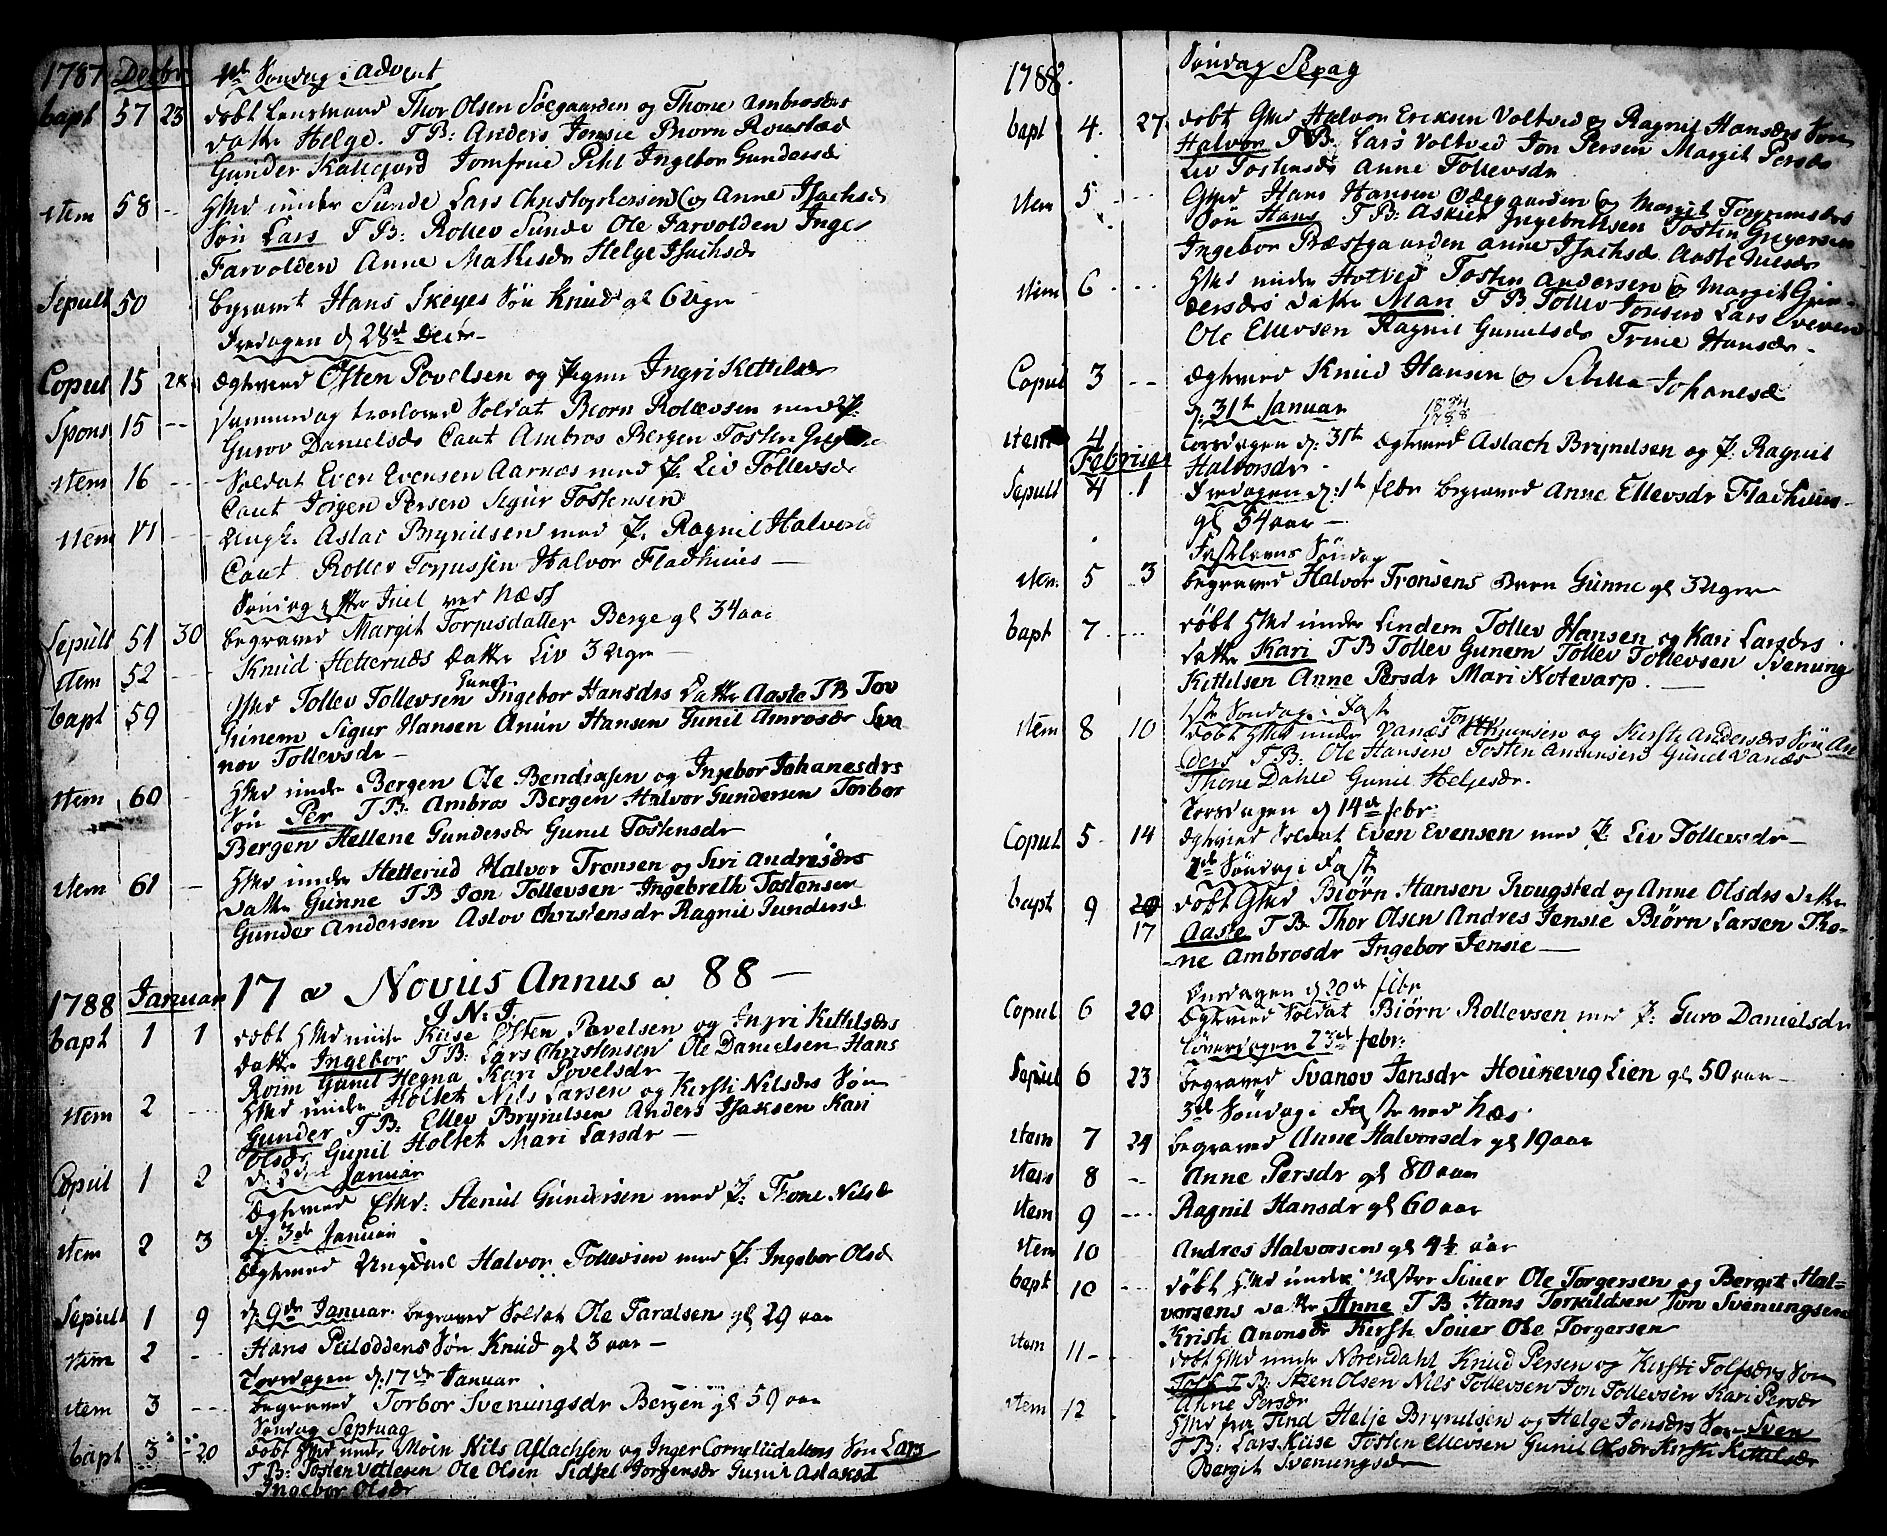 1787 Decbr 4de Søndag i Advent
bapt 57 23 døbt Lensmand Thor Olsen Søegaarden og Thone Ambrosdr
datter Helge. T B: Anders Jensie Biørn Roustad
Gunder Kallegord Jomfrue Pihl Ingebor Gundersd
item 58 -- Hkd under Sunde Lars Christophersen og Anne Isachsd
Søn Lars T B: Rollev Sunde Ole Farvolden Inger
Farvolden Anne Mathisdr Helge Isachsdr
Sepult 50 begravet Hans Skeyes Søn Knud gl 6 Uger
Fredagen d 28de Decbr
Copul 15 28 Ægteviet Østen Povelsen og P. Ingri Kettilsdr
Spons 15 -- samme dag trolovet Soldat Biørn Rollevsen med P:
Gurov Danielsdr Caut Ambros Bergen Tosten
item 16 -- Soldat Even Evensen Aarnæs med P: Liv Tollevsdr
Caut Jørgen Persen Sigur Tostensen
item 17 -- Ungk. Aslac Brynilsen med P. Ragnil Halvorsd
Caut. Rollev Torjussen Halvor Fladhuus —
Søndag efter Juel ved Næss
Sepult 51 30 begravet Margit Torjusdatter Berge gl 34 aar
item 52 -- Knud Hetteruds datter Liv 3 Uger —
bapt 59 Hkd Tollev Tollevsen Ingebor Hansdrs datter Aaste T B Tov
Gunem Sigur Hansen Anun Hansen Gunil Amrosdr Sva
nov Tollevsdr —
item 60 -- Hkd under Bergen Ole Bendixsen og Ingebor Johanesdrs
Søn Per T B: Ambros Bergen Halvor Gundersen Torbor
Bergen Hellene Gundersdr Gunil Tostensdr
item 61 -- Hkd under Hetterud Halvor Tronsen og Siri Andresdrs
datter Gunne T B Jon Tollevsen Ingebreth Tostensen
Gunder Andersen Aslov Christensdr Ragnil Gundersd
17 Novus Annus 88 —
J. N. J.
1788 Januar
bapt 1 1 døbt Hkd under Kiise Østen Povelsen og Ingri Kittilsdrs
datter Ingebor T B: Lars Christensen Ole Danielsen Hans
Roim Gunil Hegna Kari Povelsdr
item 2 --- Hkd under Holtet Nils Larsen og Kirsti Nilsdrs Søn
Gunder T B: Ellev Brynilsen Anders Isaksen Kari
Olsdr Gunil Holtet Mari Larsdr —
d: 2de Januar
Copul 1 2 Ægteviet EHkd: Stenul Gundersen med P: Thone Nilsd
d: 3de Januari
item 2 3 Ægteviet Ungkarl Halvor Tollevsen med P: Ingebor Olsd
Sepult 1 9 d: 9de Januar. begravet Soldat Ole Taralsen gl 29 aar
item 2 -- Hans Peiloddens Søn Knud gl 3 aar —
Torsdagen d: 17de Januar
item 3 --- begravet Torbor Svenungsdr Bergen gl 59 aar
Søndag Septuag
bapt 3 20 døbt Hkd under Moen Nils Aslachsen og Inger Corneliidaters Søn Lars
T B: Tosten Vetlesen Ole Olsen Sidsel Jorgensdr Gunil Aslaksd
Ingebor Olsdr
1788. Søndag Sepag
bapt 4. 27 døbt Gkd Halvor Eriksen Voltved og Ragnil Hansdrs Søn
Halvor T B: Lars Voltved Jon Persen Margit Persdr
Liv Tostensdr Anne Tollevsdr
item 5 --- Gkd Hans Hansen Odegaarden og Margit Torgrimsdrs
Søn Hans T B: Askier Ingebrethsen Tosten Gregersen
Ingebor Præstgaarden Anne Isachsd. Aaste
item 6 --- Hkd under Holtved Tosten Andersen og Margit Gun-
dersdrs datter Mari T B Tollev Jonsen Lars Sveven
Ole Ellevsen Ragnil Gunulsdr Trine Hansdr -
Copul 3 -- Ægteviet Knud Hansen og Sibilla Johanesd
d: 31te Januar 1788
item 4 Torsdagen d: 31te Ægteviet Aslach Brynilsen og P: Ragnil
Halvorsdr -
Februar
Sepult 4 1 Fredagen d: 1te febr begravet Anne Ellevsdr Fladhuus-
gl 54 aar —
Fastelavns Søndag
item 5 3 begravet Halvor Tronsens Barn Gunne gl 3 Uger
bapt 7 --- døbt Hkd under Lindem Tollev Hansen og Kari Larsdrs
datter Kari T B Tollev Gunem Tollev Tollevsen Svenung
Kittilsen Anne Persdr Mari Notevarp. —
1ste Søndag i Faste
item 8 10 døbt Hkd under Vanæs og Kirsti Andersdrs Søn An
ders T B: Ole Hansen Tosten Anunsen Gunil Vanæs
Thone Dahle Gunil Helgesdr.
Torsdagen d 14de febr:
Copul 5 14 Ægteviet Soldat Even Evensen med P: Liv Tollevsdr —
2de Søndag i Faste
bapt 9 17 døbt Gkd Biørn Hansen Rougsted og Anne Olsdrs datter
Aaste T B Thor Olsen Andres Jensie Biørn Larsen Tho-
ne Ambrosdr Ingebor Jensie —
Onsdagen d 20de febr
Copul 6 20 Ægteviet Soldat Biørn Rollevsen med P: Guro Danielsdr
Løverdagen 23de febr:
Sepul 6 23 begravet Svanov Jensdr Houkevig Lien gl 50 aar —
3de Søndag i Faste ved Næs.
item 7 24 begravet Anne Halvorsdr gl 19 aar
item 8 -- Anne Persdr gl 80 aar
item 9 --- Ragnil Hansdr gl 60 aar
item 10 -- Andres Halvorsen gl 4½ aar
bapt 10 -- døbt Hkd under Søter Siuer Ole Torgersen og Bergit Hal-
vorsens datter Anne T B Hans Torkildsen Jon Svenungsen
Kristi Anonsdr Kirsti Siuer Ole Torgersen
item 11 - døbt Hkd under Norendahl Knud Persen og Kirsti Tolfsdrs Søn
Tolf T B: Sten Olsen Nils Tollevsen Jon Tollevsen Kari Persdr
Anne Persdr
item 12 Hkd fra Tind Helje Brynilsen og Helge Jonsdrs Søn Sven
T B: Lars Kiise Tosten Ellevsen Gunil Olsdr Kirsti Kittilsdr
Bergit Svenungsdr